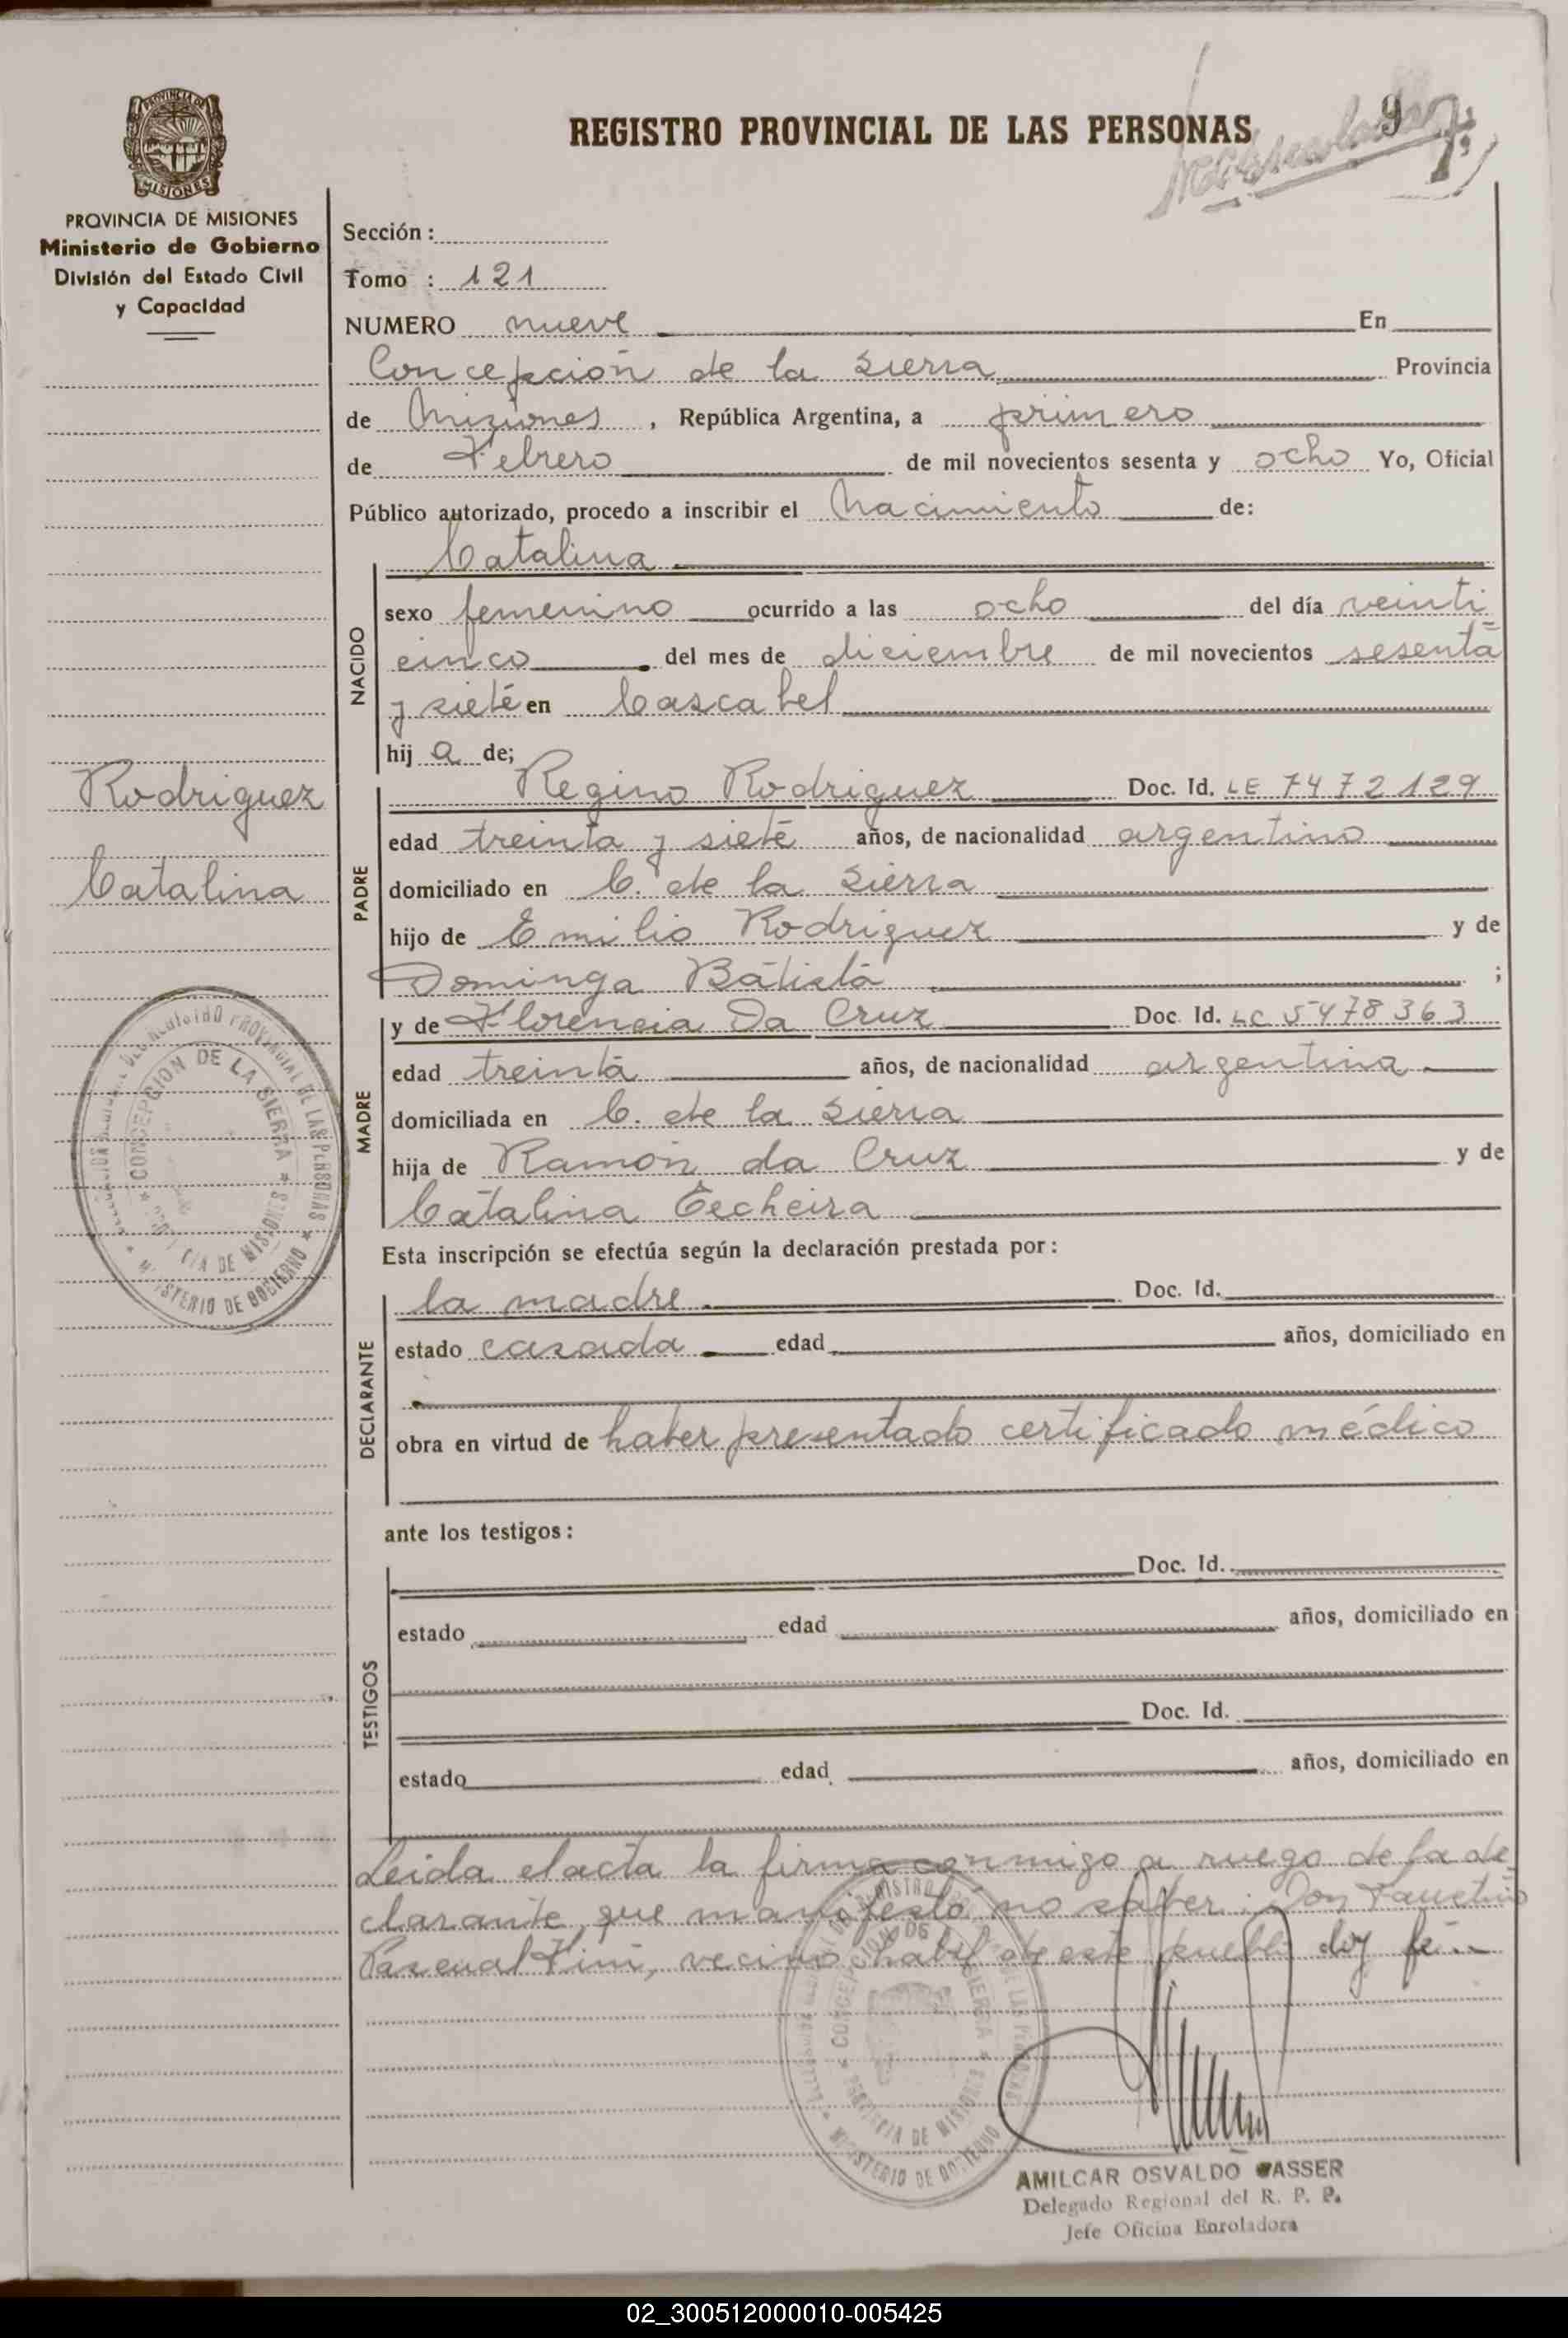 REGISTRO PROVINCIAL DE LAS PERSONAS
9
PROVINCIA DE MISIONES
Ministerio de Gobierno
División del Estado Civil
y Capacidad
Sección :
Tomo : 121
NUMERO nueve En
Concepción de la Sierra Provincia
de Misiones , República Argentina, a primero
de Febrero de mil novecientos sesenta y ocho Yo, Oficial
Público autorizado, procedo a inscribir el Nacimiento de:
Catalina
NACIDO
sexo femenino ocurrido a las ocho del día veinti
cinco del mes de diciembre de mil novecientos sesenta
y siete en Cascabel
hij a de;
Rodriguez
Catalina
PADRE
Regino Rodriguez Doc. Id. LE 7472129
edad treinta y siete años, de nacionalidad argentino
domiciliado en C. de la Sierra
hijo de Emilio Rodriguez y de
Dominga Batista ;
MADRE
y de Florencia Da Cruz Doc. Id. LC 5478363
edad treinta años, de nacionalidad argentina
domiciliada en C. de la Sierra
hija de Ramón da Cruz y de
Catalina
Esta inscripción se efectúa según la declaración prestada por:
DECLARANTE
la madre Doc. Id.
estado casada edad años, domiciliado en
obra en virtud de haber presentado certificado médico
ante los testigos:
TESTIGOS
Doc. Id.
estado edad años, domiciliado en
Doc. Id.
estado edad años, domiciliado en
Leida el acta la firma conmigo a ruego de la de
clarante, que manifestó no saber: Don Faustino
Pascual Fini, vecino habil de este pueblo doy fé.
CONCEPCION DE LA SIERRA
PROVINCIA DE MISIONES
REGISTRO PROVINCIAL DE LAS PERSONAS
MINISTERIO DE GOBIERNO
AMILCAR OSVALDO WASSER
Delegado Regional del R. P. P.
Jefe Oficina Enroladora
02_300512000010-005425